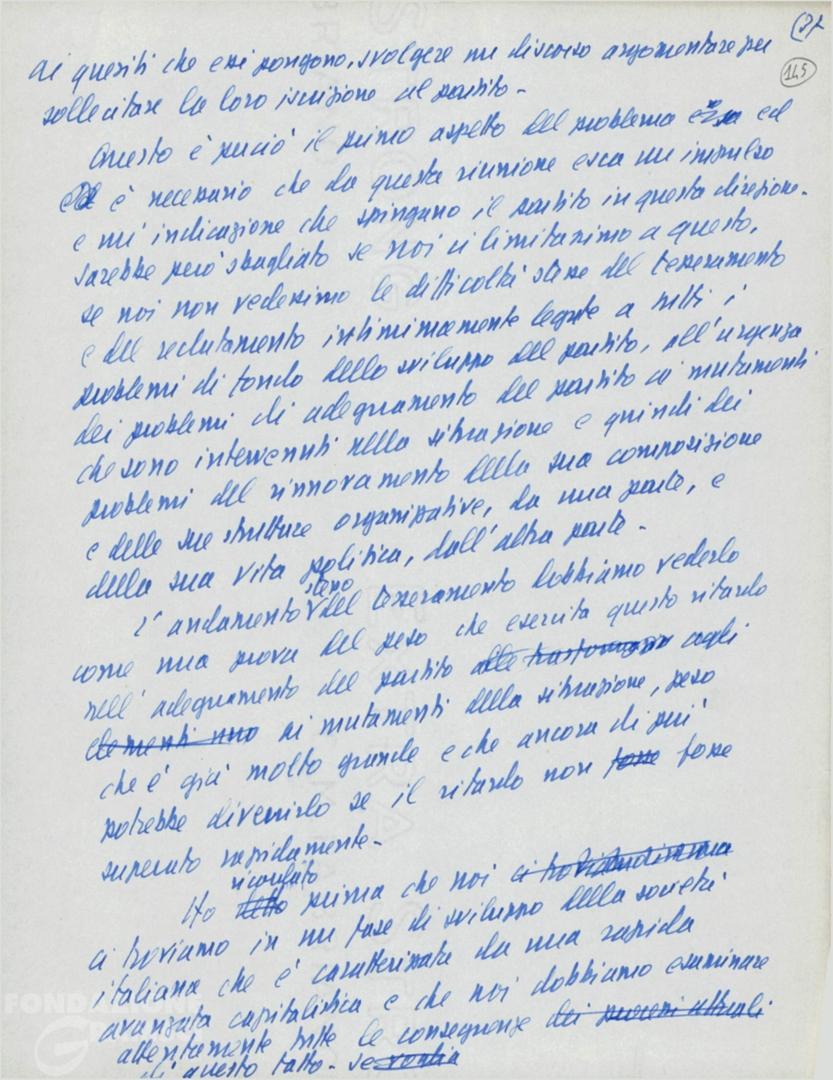 145
ai quesiti che essi pongono, svolgere un discorso argomentare per
sollecitare la loro iscrizione al partito -
Questo è perciò il primo aspetto del problema ed
è necessario che da questa riunione esca un impulso
e un'indicazione che spingano il partito in questa direzione.
Sarebbe però sbagliato se noi ci limitassimo a questo,
se noi non vedessimo le difficoltà stesse del tesseramento
e del reclutamento intimimamente legate a tutti i
problemi di fondo dello sviluppo del partito, all'urgenza
dei problemi di adeguamento del partito ai mutamenti
che sono intervenuti nella situazione e quindi dei
problemi del rinnovamento della sua composizione
e delle sue strutture organizzative, da una parte, e
della sua vita politica, dall'altra parte -
stesso
L'andamento del tesseramento dobbiamo vederlo
come una prova del peso che esercita questo ritardo
nell'adeguamento del partito alle agli
elementi uno ai mutamenti della situazione, peso
che è già molto grande e che ancora di più
potrebbe divenirlo se il ritardo non fosse fosse
superato rapidamente -
ricordato
Ho detto prima che noi ci
ci troviamo in un fase di sviluppo della società
italiana che è caratterizzata da una rapida
avanzata capitalistica e che noi dobbiamo esaminare
attentamente tutte le conseguenze dei processi attuali
di questo fatto - se voglia
FONDAZIONE